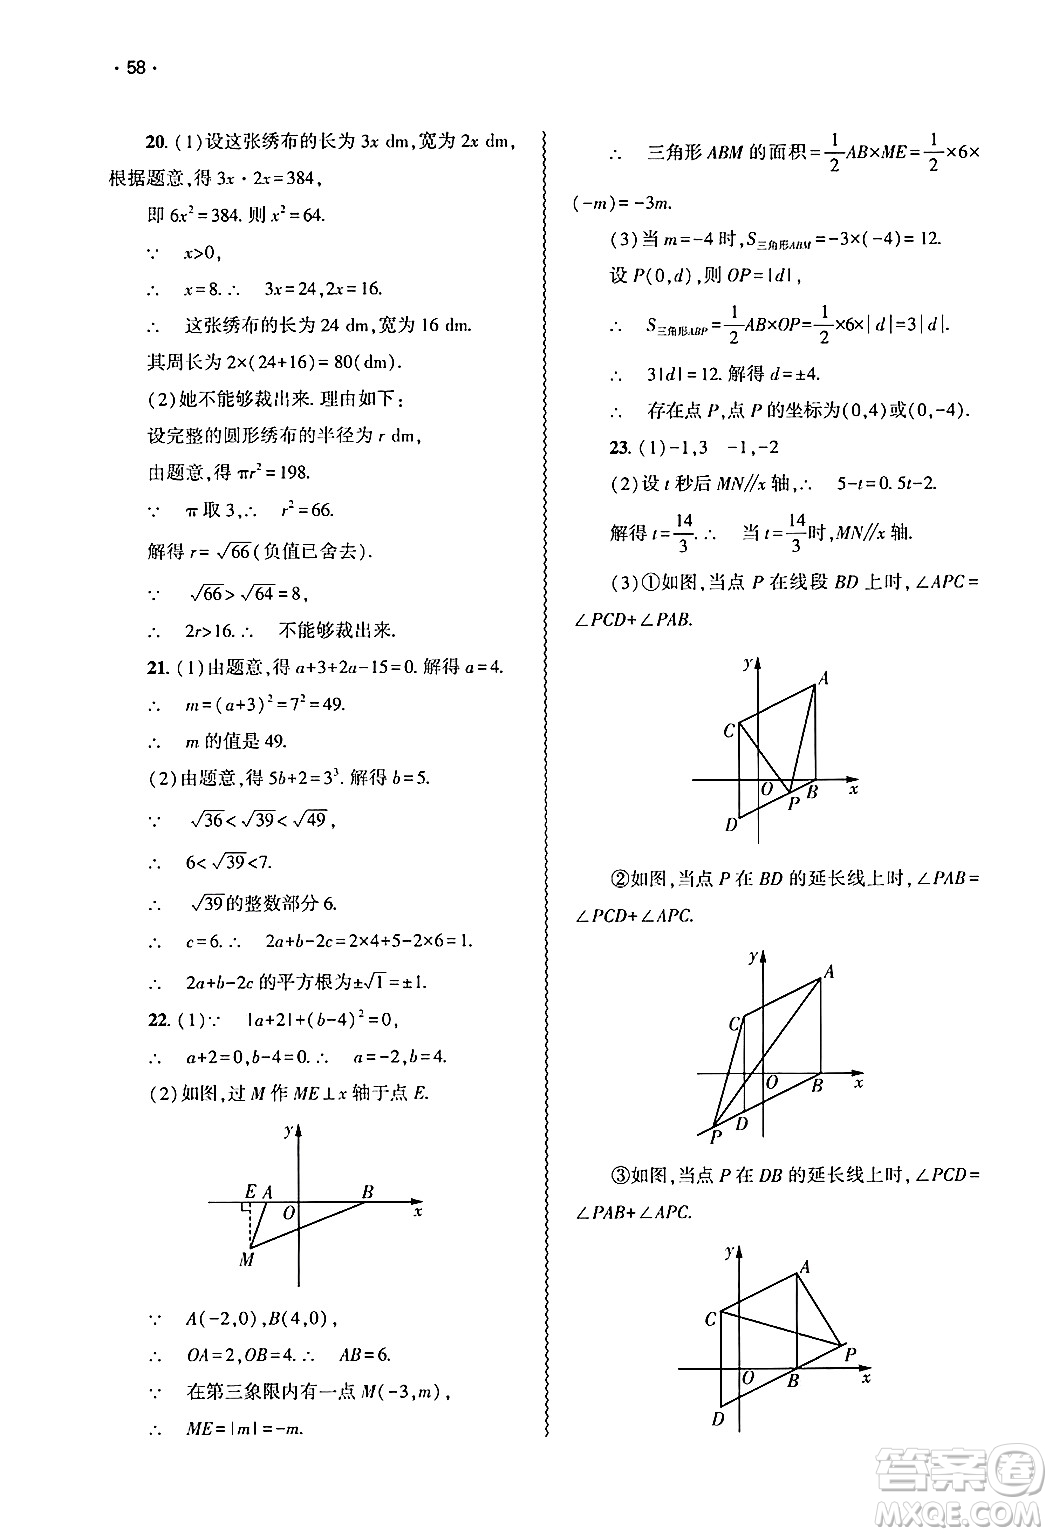 · 58 ·
20. (1)设这张绣布的长为 3x dm,宽为 2x dm,
根据题意,得 3x · 2x=384,
即 6x²=384. 则 x²=64.
∵ x>0,
∴ x=8. ∴ 3x=24,2x=16.
∴ 这张绣布的长为 24 dm,宽为 16 dm.
其周长为 2×(24+16)=80(dm).
(2)她不能够裁出来. 理由如下:
设完整的圆形绣布的半径为 r dm,
由题意,得 πr²=198.
∵ π 取 3,∴ r²=66.
解得 r=√66(负值已舍去).
∵ √66>√64=8,
∴ 2r>16. ∴ 不能够裁出来.
21. (1)由题意,得 a+3+2a-15=0. 解得 a=4.
∴ m=(a+3)²=7²=49.
∴ m 的值是 49.
(2)由题意,得 5b+2=3³. 解得 b=5.
∵ √36<√39<√49,
∴ 6<√39<7.
∴ √39的整数部分 6.
∴ c=6. ∴ 2a+b-2c=2×4+5-2×6=1.
∴ 2a+b-2c 的平方根为±√1=±1.
22. (1)∵ |a+2|+(b-4)²=0,
∴ a+2=0,b-4=0. ∴ a=-2,b=4.
(2)如图,过 M 作 ME⊥x 轴于点 E.
y
E A B
O x
M
∵ A(-2,0),B(4,0),
∴ OA=2,OB=4. ∴ AB=6.
∵ 在第三象限内有一点 M(-3,m),
∴ ME=|m|=-m.
∴ 三角形 ABM 的面积=1/2AB×ME=1/2×6×
(-m)=-3m.
(3)当 m=-4 时,S三角形ABM=-3×(-4)=12.
设 P(0,d),则 OP=|d|,
∴ S三角形ABP=1/2AB×OP=1/2×6×|d|=3|d|.
∴ 3|d|=12. 解得 d=±4.
∴ 存在点 P,点 P 的坐标为(0,4)或(0,-4).
23. (1)-1,3 -1,-2
(2)设 t 秒后 MN//x 轴,∴ 5-t=0.5t-2.
解得 t=14/3. ∴ 当 t=14/3时,MN//x 轴.
(3)①如图,当点 P 在线段 BD 上时,∠APC=
∠PCD+∠PAB.
y
A
C
O P B x
D
②如图,当点 P 在 BD 的延长线上时,∠PAB=
∠PCD+∠APC.
y
A
C
O B x
P D
③如图,当点 P 在 DB 的延长线上时,∠PCD=
∠PAB+∠APC.
y
A
C
P
O B x
D
答案圈
MXQE.COM